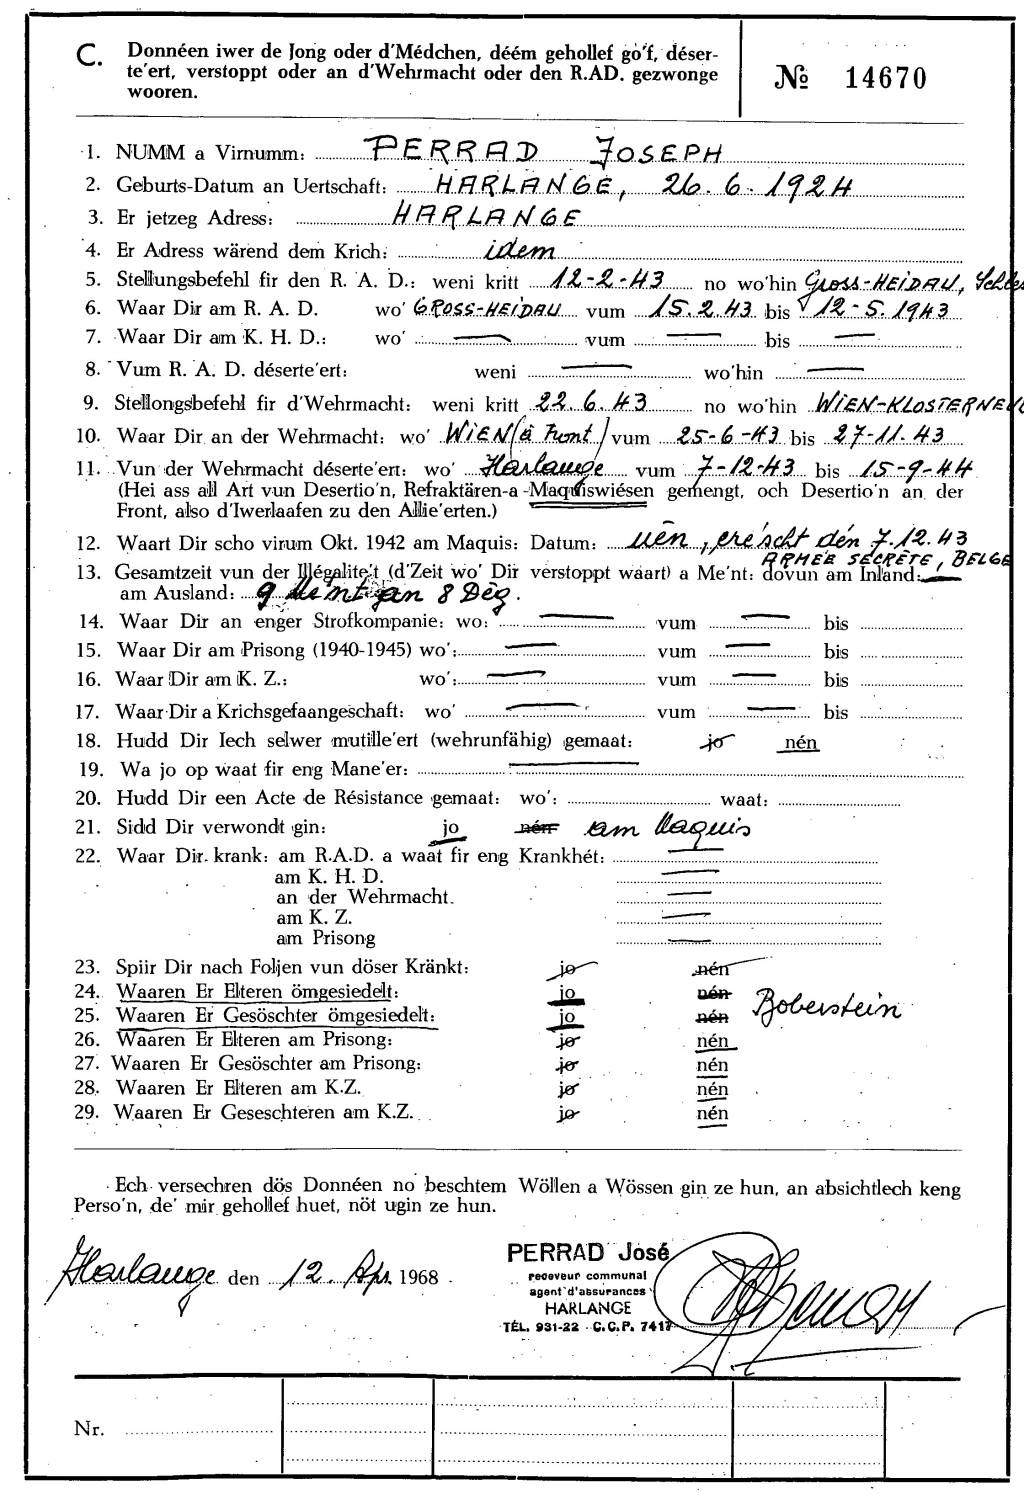 C. Donnéen iwer de Jong oder d'Médchen, déém gehollef go'f, déser-
te'ert, verstoppt oder an d'Wehrmacht oder den R.AD. gezwonge
wooren.
№ 14670
1. NUMM a Virnumm: PERRAD JOSEPH
2. Geburts-Datum an Uertschaft: HARLANGE, 26.6.1924
3. Er jetzeg Adress: HARLANGE
4. Er Adress wärend dem Krich: idem
5. Stellungsbefehl fir den R. A. D.: weni kritt 12-2-43 no wo'hin GROSS-HEIDAU,
6. Waar Dir am R. A. D. wo' GROSS-HEIDAU vum 15.2.43 bis 12-5.1943
7. Waar Dir am K. H. D.: wo' — vum — bis —
8. Vum R. A. D. déserte'ert: weni — wo'hin —
9. Stellongsbefehl fir d'Wehrmacht: weni kritt 22.6.43 no wo'hin WIEN-KLOSTERNEU
10. Waar Dir an der Wehrmacht: wo' WIEN (à Front) vum 25-6-43 bis 27-11.43
11. Vun der Wehrmacht déserte'ert: wo' Harlange vum 7-12-43 bis 15-9-44
(Hei ass all Art vun Desertio'n, Refraktären-a Maquiswiésen gemengt, och Desertio'n an der
Front, also d'Iwerlaafen zu den Allie'erten.)
12. Waart Dir scho virum Okt. 1942 am Maquis: Datum: nén, ere'scht dén 7.12.43
ARMÉE SECRÈTE, BELGE
13. Gesamtzeit vun der Illégalite't (d'Zeit wo' Dir verstoppt waart) a Me'nt: dovun am Inland: —
am Ausland: 9 Me'nt an 8 Dég.
14. Waar Dir an enger Strofkompanie: wo: — vum — bis
15. Waar Dir am Prisong (1940-1945) wo': — vum — bis
16. Waar Dir am K. Z.: wo': — vum — bis
17. Waar Dir a Krichsgefaangeschaft: wo' — vum — bis
18. Hudd Dir Iech selwer mutille'ert (wehrunfähig) gemaat: jo nén
19. Wa jo op waat fir eng Mane'er: —
20. Hudd Dir een Acte de Résistance gemaat: wo': waat:
21. Sidd Dir verwondt gin: jo nén am Maquis
22. Waar Dir krank: am R.A.D. a waat fir eng Krankhét: —
am K. H. D. —
an der Wehrmacht. —
am K. Z. —
am Prisong —
23. Spiir Dir nach Foljen vun döser Kränkt: jo nén
24. Waaren Er Elteren ömgesiedelt: jo nén Boberstein
25. Waaren Er Gesöschter ömgesiedelt: jo nén
26. Waaren Er Elteren am Prisong: jo nén
27. Waaren Er Gesöschter am Prisong: jo nén
28. Waaren Er Elteren am K.Z. jo nén
29. Waaren Er Geseschteren am K.Z. jo nén
Ech versechren dös Donnéen no beschtem Wöllen a Wössen gin ze hun, an absichtlech keng
Perso'n, de' mir gehollef huet, nöt ugin ze hun.
Harlange den 12. Apr. 1968
PERRAD José
receveur communal
agent d'assurances
HARLANGE
TÉL. 931-22 C.C.P. 7417
Nr.